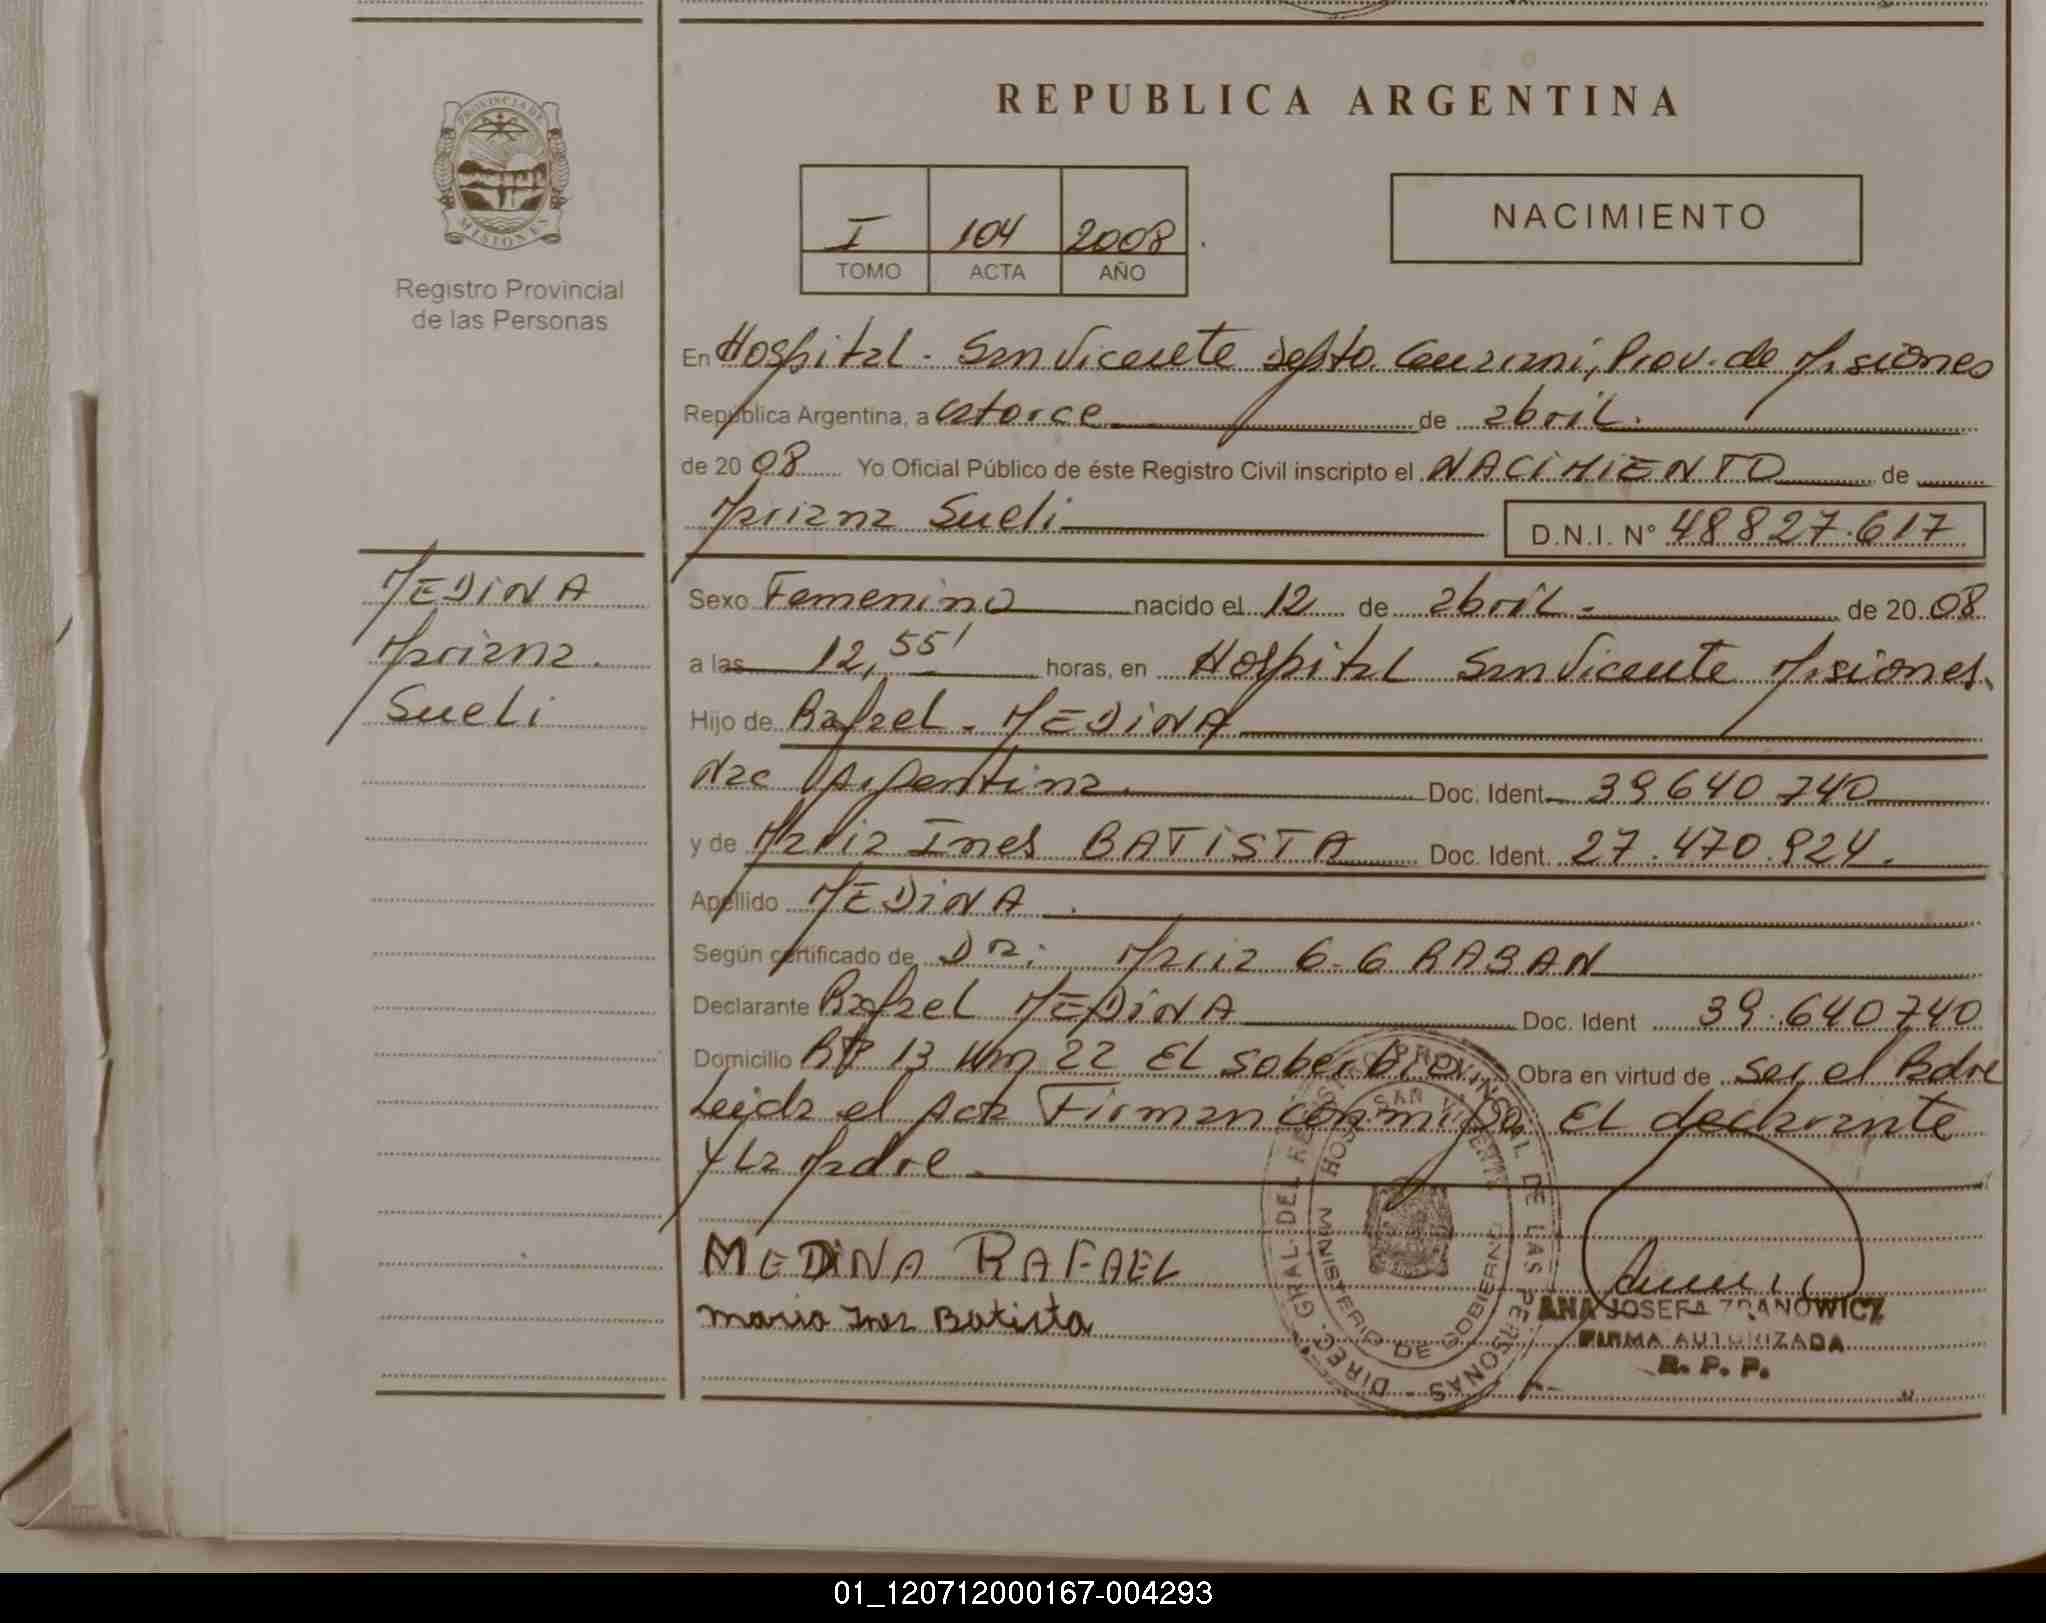 REPUBLICA ARGENTINA
PROVINCIA DE
MISIONES
Registro Provincial
de las Personas
I 104 2008
TOMO ACTA AÑO
NACIMIENTO
En Hospital - San Vicente Depto. Guarani, Prov. de Misiones
República Argentina, a catorce de abril.
de 20 08 Yo Oficial Público de éste Registro Civil inscripto el NACIMIENTO de
Mariana Sueli D.N.I. N° 48827.617
MEDINA
Mariana
Sueli
Sexo Femenino nacido el 12 de abril - de 20 08
a las 12,55' horas, en Hospital San Vicente Misiones.
Hijo de Rafael - MEDINA
Nac Argentina. Doc. Ident. 39640740
y de Maria Ines BATISTA Doc. Ident. 27.470.924.
Apellido MEDINA
Según certificado de Dr: Maria G. GRABAN
Declarante Rafael MEDINA Doc. Ident 39.640740
Domicilio RP 13 Km 22 El Soberbio Obra en virtud de ser el Padre
Leida el Acta Firman conmigo El declarante
y La Madre -
MEDINA RAFAEL
Maria Ines Batista
DIREC. GRAL. DEL REGISTRO PROVINCIAL DE LAS PERSONAS -
HOSP. SAN VICENTE
MINISTERIO DE GOBIERNO
ANA JOSEFA ZDANOWICZ
FIRMA AUTORIZADA
R. P. P.
01_120712000167-004293